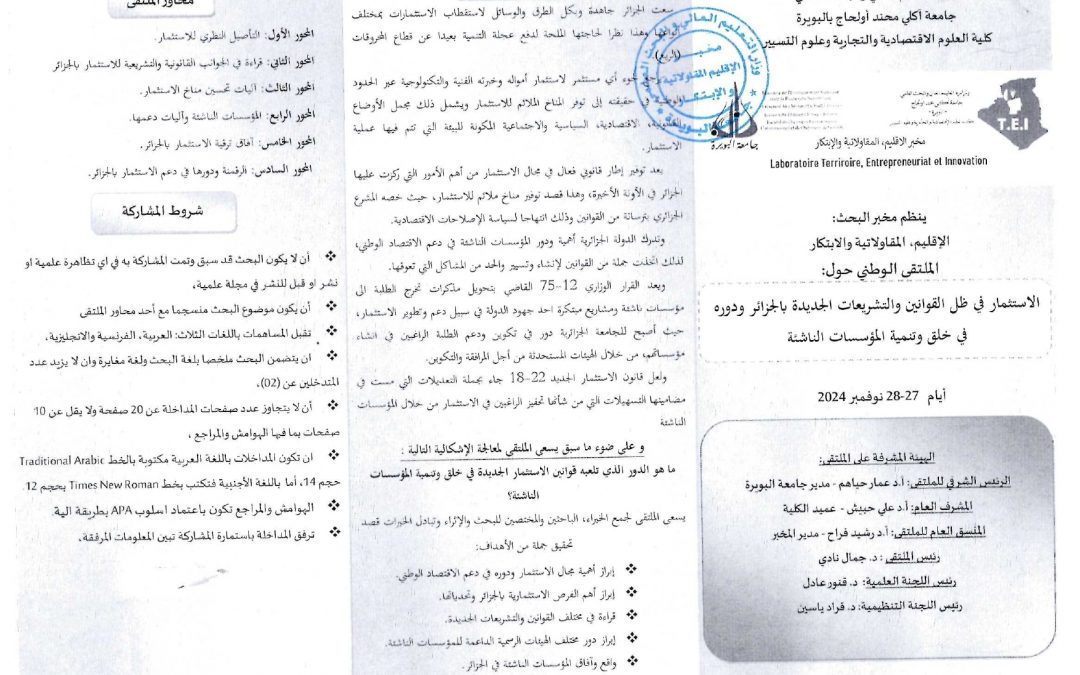 جامعة أكلي محند أولحاج بالبويرة
كلية العلوم الاقتصادية والتجارية وعلوم التسيير
T.E.I
جامعة البويرة
مخبر الاقليم، المقاولاتية والابتكار
Laboratoire Terriroire, Entrepreneuriat et Innovation
ينظم مخبر البحث:
الإقليم، المقاولاتية والابتكار
الملتقى الوطني حول:
الاستثمار في ظل القوانين والتشريعات الجديدة بالجزائر ودوره
في خلق وتنمية المؤسسات الناشئة
أيام 27-28 نوفمبر 2024
الهيئة المشرفة على الملتقى:
الرئيس الشرفي للملتقى: أ.د عمار حياهم - مدير جامعة البويرة
المشرف العام: أ.د علي حبيش - عميد الكلية
المنسق العام للملتقى: أ.د رشيد فراح - مدير المخبر
رئيس الملتقى: د. جمال نادي
رئيس اللجنة العلمية: د. قنور عادل
رئيس اللجنة التنظيمية: د. قراد ياسين
سعت الجزائر جاهدة وبكل الطرق والوسائل لاستقطاب الاستثمارات بمختلف
وهذا نظرا لحاجتها الملحة لدفع عجلة التنمية بعيدا عن قطاع المحروقات
(الريع)
أي مستثمر لاستثمار أمواله وخبرته الفنية والتكنولوجية عبر الحدود
في حقيقته إلى توفر المناخ الملائم للاستثمار ويشمل ذلك مجمل الأوضاع
الاقتصادية، السياسية والاجتماعية المكونة للبيئة التي تتم فيها عملية
الاستثمار.
يعد توفير إطار قانوني فعال في مجال الاستثمار من أهم الأمور التي ركزت عليها
الجزائر في الآونة الأخيرة، وهذا قصد توفير مناخ ملائم للاستثمار، حيث خصه المشرع
الجزائري بترسانة من القوانين وذلك انتهاجا لسياسة الإصلاحات الاقتصادية.
وتدرك الدولة الجزائرية أهمية ودور المؤسسات الناشئة في دعم الاقتصاد الوطني،
لذلك اتخذت جملة من القوانين لإنشاء وتسيير والحد من المشاكل التي تعوقها.
ويعد القرار الوزاري 12–75 القاضي بتحويل مذكرات تخرج الطلبة الى
مؤسسات ناشئة ومشاريع مبتكرة احد جهود الدولة في سبيل دعم وتطوير الاستثمار،
حيث أصبح للجامعة الجزائرية دور في تكوين ودعم الطلبة الراغبين في انشاء
مؤسساتهم، من خلال الهيئات المستحدثة من أجل المرافقة والتكوين.
ولعل قانون الاستثمار الجديد 22–18 جاء بجملة التعديلات التي مست في
مضامينها التسهيلات التي من شأنها تحفيز الراغبين في الاستثمار من خلال المؤسسات
الناشئة
و على ضوء ما سبق يسعى الملتقى لمعالجة الإشكالية التالية :
ما هو الدور الذي تلعبه قوانين الاستثمار الجديدة في خلق وتنمية المؤسسات
الناشئة؟
يسعى الملتقى لجمع الخبراء، الباحثين والمختصين للبحث والإثراء وتبادل الخبرات قصد
تحقيق جملة من الأهداف:
❖ إبراز أهمية مجال الاستثمار ودوره في دعم الاقتصاد الوطني.
❖ إبراز أهم الفرص الاستثمارية بالجزائر وتحدياتها.
❖ قراءة في مختلف القوانين والتشريعات الجديدة.
❖ إبراز دور مختلف الهيئات الرسمية الداعمة للمؤسسات الناشئة.
❖ واقع وآفاق المؤسسات الناشئة في الجزائر.
محاور الملتقى
المحور الأول: التأصيل النظري للاستثمار.
المحور الثاني: قراءة في الجوانب القانونية والتشريعية للاستثمار بالجزائر
المحور الثالث: آليات تحسين مناخ الاستثمار.
المحور الرابع: المؤسسات الناشئة وآليات دعمها.
المحور الخامس: آفاق ترقية الاستثمار بالجزائر.
المحور السادس: الرقمنة ودورها في دعم الاستثمار بالجزائر.
شروط المشاركة
❖ أن لا يكون البحث قد سبق وتمت المشاركة به في اي تظاهرة علمية او
نشر او قبل للنشر في مجلة علمية،
❖ أن يكون موضوع البحث منسجما مع أحد محاور الملتقى
❖ تقبل المساهمات باللغات الثلاث: العربية، الفرنسية والانجليزية،
❖ ان يتضمن البحث ملخصا بلغة البحث ولغة مغايرة وان لا يزيد عدد
المتدخلين عن (02)،
❖ أن لا يتجاوز عدد صفحات المداخلة عن 20 صفحة ولا يقل عن 10
صفحات بما فيها الهوامش والمراجع ،
❖ ان تكون المداخلات باللغة العربية مكتوبة بالخط Traditional Arabic
حجم 14، أما باللغة الأجنبية فتكتب بخط Times New Roman بحجم 12.
❖ الهوامش والمراجع تكون باعتماد اسلوب APA بطريقة الية.
❖ ترفق المداخلة باستمارة المشاركة تبين المعلومات المرفقة،